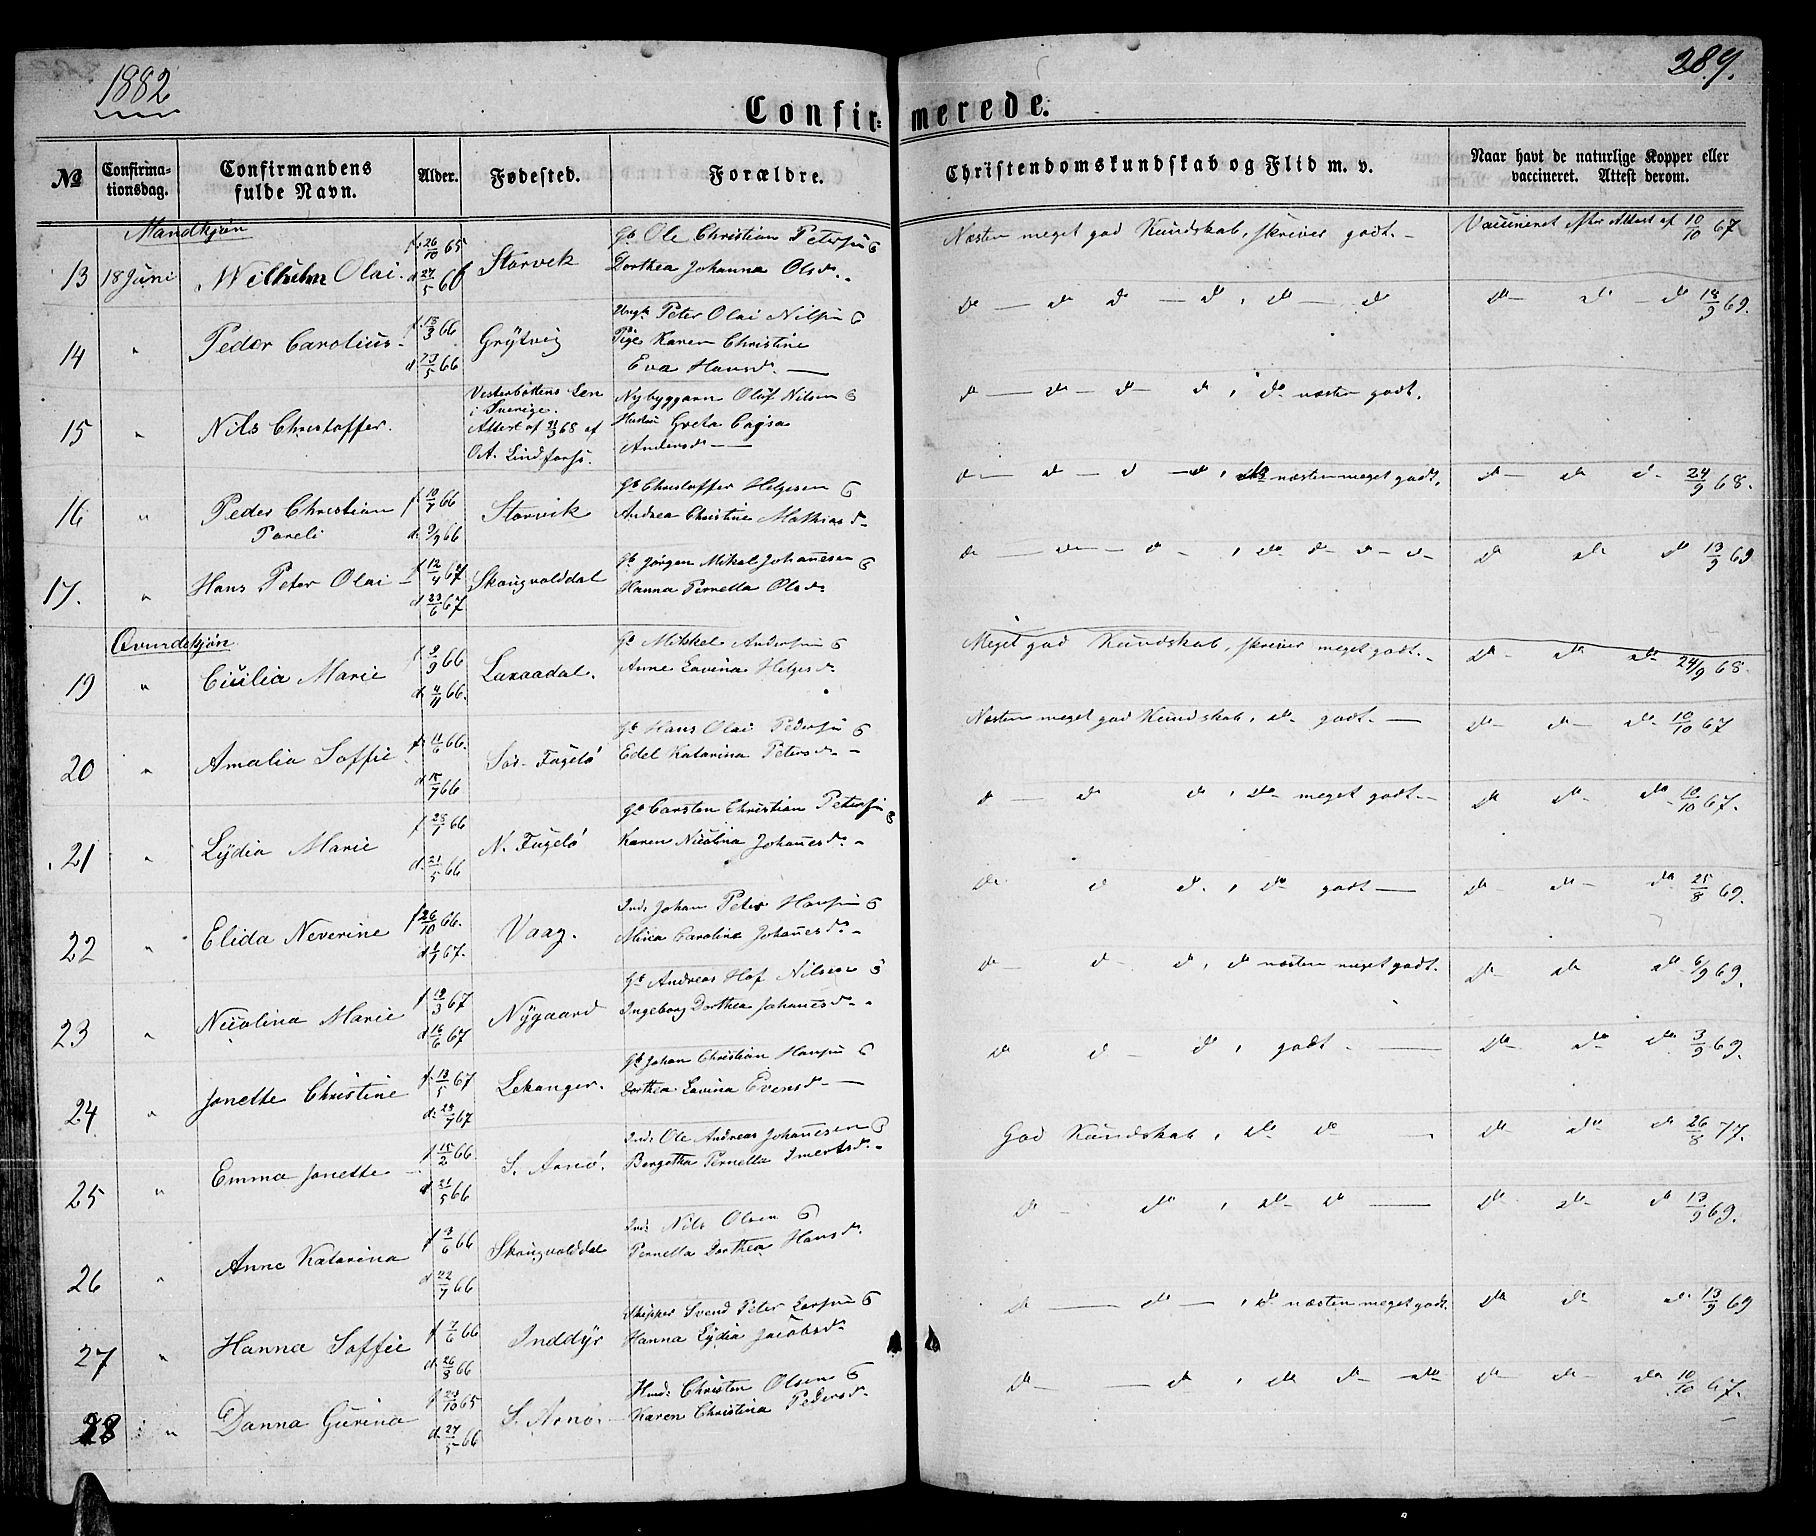 1882
289.
Confir=merede.
No
Confirmationsdag.
Confirmandens fulde Navn.
Alder.
Fødested.
Forældre.
Christendomskundskab og Flid m. v.
Naar havt de naturlige Kopper eller vaccineret. Attest derom.
Mandkjøn
13 18 Juni Wilhelm Olai. f. 26/10 65 d. 27/5 66 Storvik Gb Ole Christian Petersen G Dorthea Johanna Olsd. Næsten meget god Kundskab, skriver godt. Vaccineret efter Attest af 10/10 67
14 " Peder Carolius. f. 13/3 66 d. 23/5 66 Grytvig Ungk. Peter Olai Nilsen G Pige Karen Christine Eva Hansd. do — do do — do, do — do do — do — do 18/9 69.
15 " Nils Christoffer. Vesterbottens Len i Sverige. Attest af 21/3 68 af O.A. Lindforss. Nybyggarn Olof Nilsen G Hustru Greta Cajsa Andersd. do — do — do do, do næsten godt.
16 " Peder Christian Pareli f. 10/7 66 d. 9/9 66 Storvik Gb Christoffer Helgesen G Andrea Christine Mathiasd. do — do — do — do, do næsten meget godt. do — do do 24/9 68.
17. " Hans Peter Olai f. 12/4 67 d. 23/6 67 Skougvolddal Gb Jørgen Mikal Johannesen G Hanna Pernella Olsd. do — do — do —, do do — do — do do do do 13/9 69
Qvindekjøn
19 " Cicilia Marie f. 9/9 66 d. 4/11 66. Laxaadal. Gb Mikkel Andersen G Anne Lavina Helgesd. Meget god Kundskab, skriver meget godt. do — do do 24/9 68.
20 " Amalia Soffie f. 11/6 66. d. 15/7 66 Sør-Fugelø Gb Hans Olai Pedersen G Edel Katarina Petersd. Næsten meget god Kundskab, do godt. do — do — do 10/10 67
21 " Lydia Marie f. 28/1 66 d. 21/5 66 N. Fugelø Gb Carsten Christian Petersen G Karen Nicolina Johannesd. do — do do, do meget godt. do do do 10/10 67.
22 " Elida Neverine f. 26/10 66. d. 1/1 67. Vaag. Inds Johan Peter Hansen G Mina Carolina Johannesd. do do do, do godt do — do — do 25/8 69.
23 " Nicolina Marie f. 19/3 67 d. 16/6 67 Nygaard Gb Andreas Hof Nilsen G Ingeborg Dorthea Johannesd. do — do — do, do næsten meget godt. do — do do 6/9 69.
24 " Jonette Christine f. 13/5 67 d. 23/7 67 Lekanger. Gb Johan Christian Hansen G Dorthea Lavina Evensd. do do — do, godt. do — do do 3/9 69.
25 " Emma Jonette f. 15/2 66 d. 21/5 66 S. Arnø. Inds Ole Andreas Johannesen G Bergetha Pernella Imertsd. God Kundskab, do do do — do do 26/8 77.
26 " Anne Katarina f. 9/6 66 d. 22/7 66 Skougvolddal Inds Nils Olsen G Pernella Dorthea Hansd. do — do, do do do do — do 13/9 69.
27 " Hanna Soffie f. 7/6 66 d. 26/8 66 Inddyr Skipper Svend Peter Larsen G Hanna Lydia Jacobsd. do — do —, do næsten meget godt. do do do 13/9 69
28 " Danna Gurina f. 23/10 65 d. 27/5 66 S. Arnø. Husd. Christen Olsen G Karen Christina Pedersd. do — do, do do — do do — do — do 10/10 67.